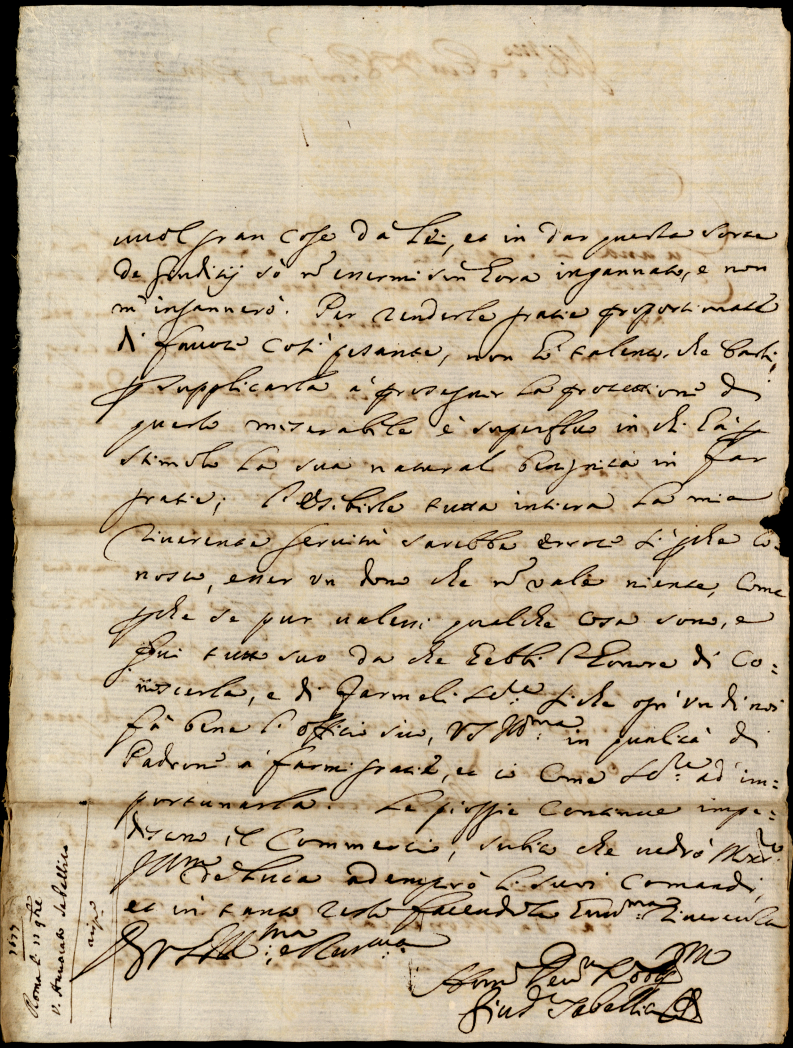 vuol gran cose da lei, et in dar questa sorte
de Giuditij sò no essermi sin hora ingannato, e non
m'ingannerò. Per renderle gratie proportionate
di favore così pesante, non hò talento, che basti,
supplicarla à proseguir la protettione di
questo miserabile è superfluo in chi hà p
stimolo la sua natural benignità in far
gratie; l'esibirle tutta intiera la mia
riverente servitù sarebbe errore sì pche co-
nosco, esser un dono che no vale niente, come
pche se pur valessi qualche cosa sono, e
fui tutto suo da che hebbi l'honore di co:
noscerla, e di farmeli Sre, siche ogn'un di noi
fà bene l'officio suo, VS Illma in qualità di
Padrone à farmi gratie, et io come Sre ad im:
portunarla. Le pioggie continue impe:
discono il Commercio, subito che vedrò Monsr
de Luca adempirò li suoi Comandi,
et in tanto resto facendole riverenza
Di V S Illma e Revma
Humo Devmo
Giud Sabellici
1677
Roma li 11 9bre
V. Avvocato Sabellico
rispo